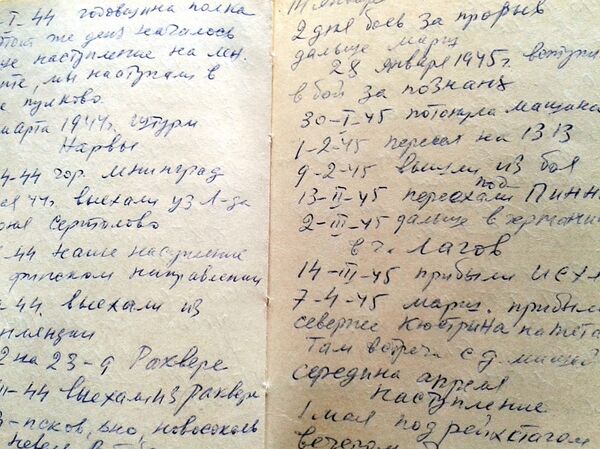 I-44 годовщина полка
этот же день началось
наступление на лен.
мы наступали в
пулково.
марта 1944г.
Нарвы
4-44 гор. Ленинград
44г. выехали из Л-да
Сертолово
-44 наше наступление
финском направлении
44. выехали из
нляндии
2 на 23-9 Раквере
-44 выехали из Раквере
псков, дно, новосоколь
Невель
2 дня боев за прорыв
дальше марш
28 января 1945г. вступи
в бой за познань
30-I-45 потонула машина
1-2-45 пересел на 13 13
9-2-45 вышли из боя
13-II-45 переехали под Пинн
2-III-45 дальше в германи
в г. Лагов
14-III-45 прибыли
7-4-45 марш. прибыли
севернее Кюстрина
Там встреча с д. мишей
середина апреля
Наступление
1 мая под рейхстагом
вечером